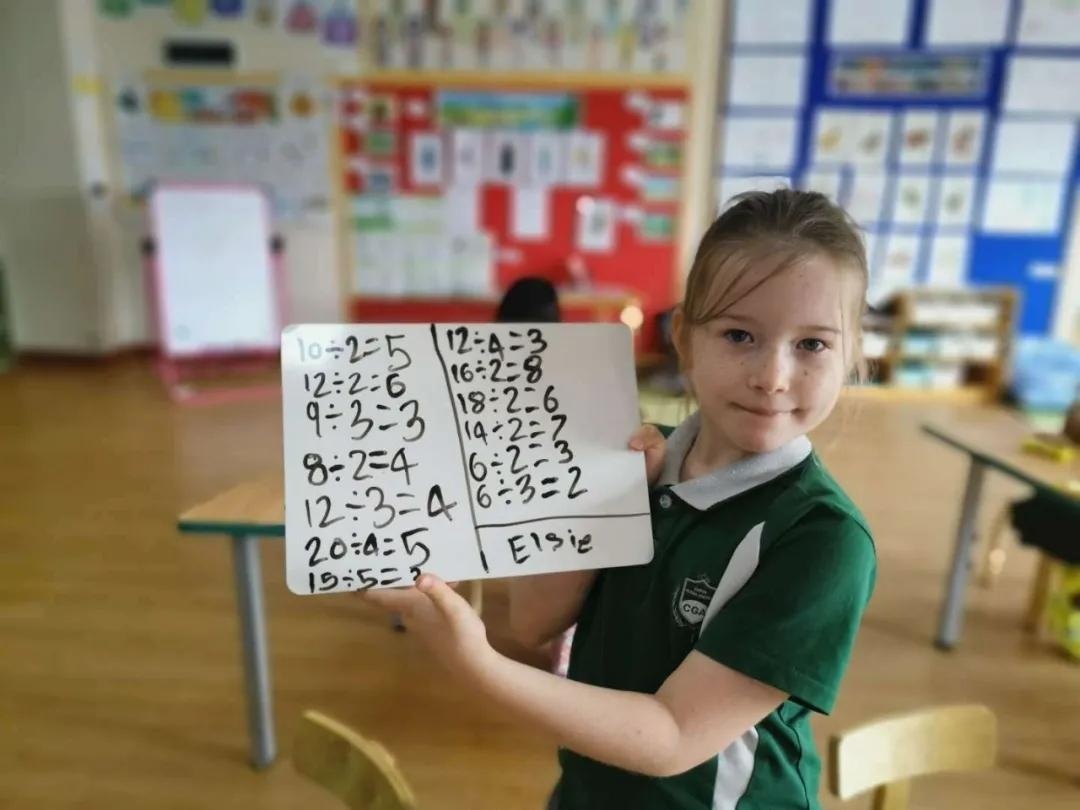 10÷2=5
12÷2=6
9÷3=3
8÷2=4
12÷3=4
20÷4=5
15÷5=
12÷4=3
16÷2=8
18÷2=6
14÷2=7
6÷2=3
6÷3=2
Elsie
CGA